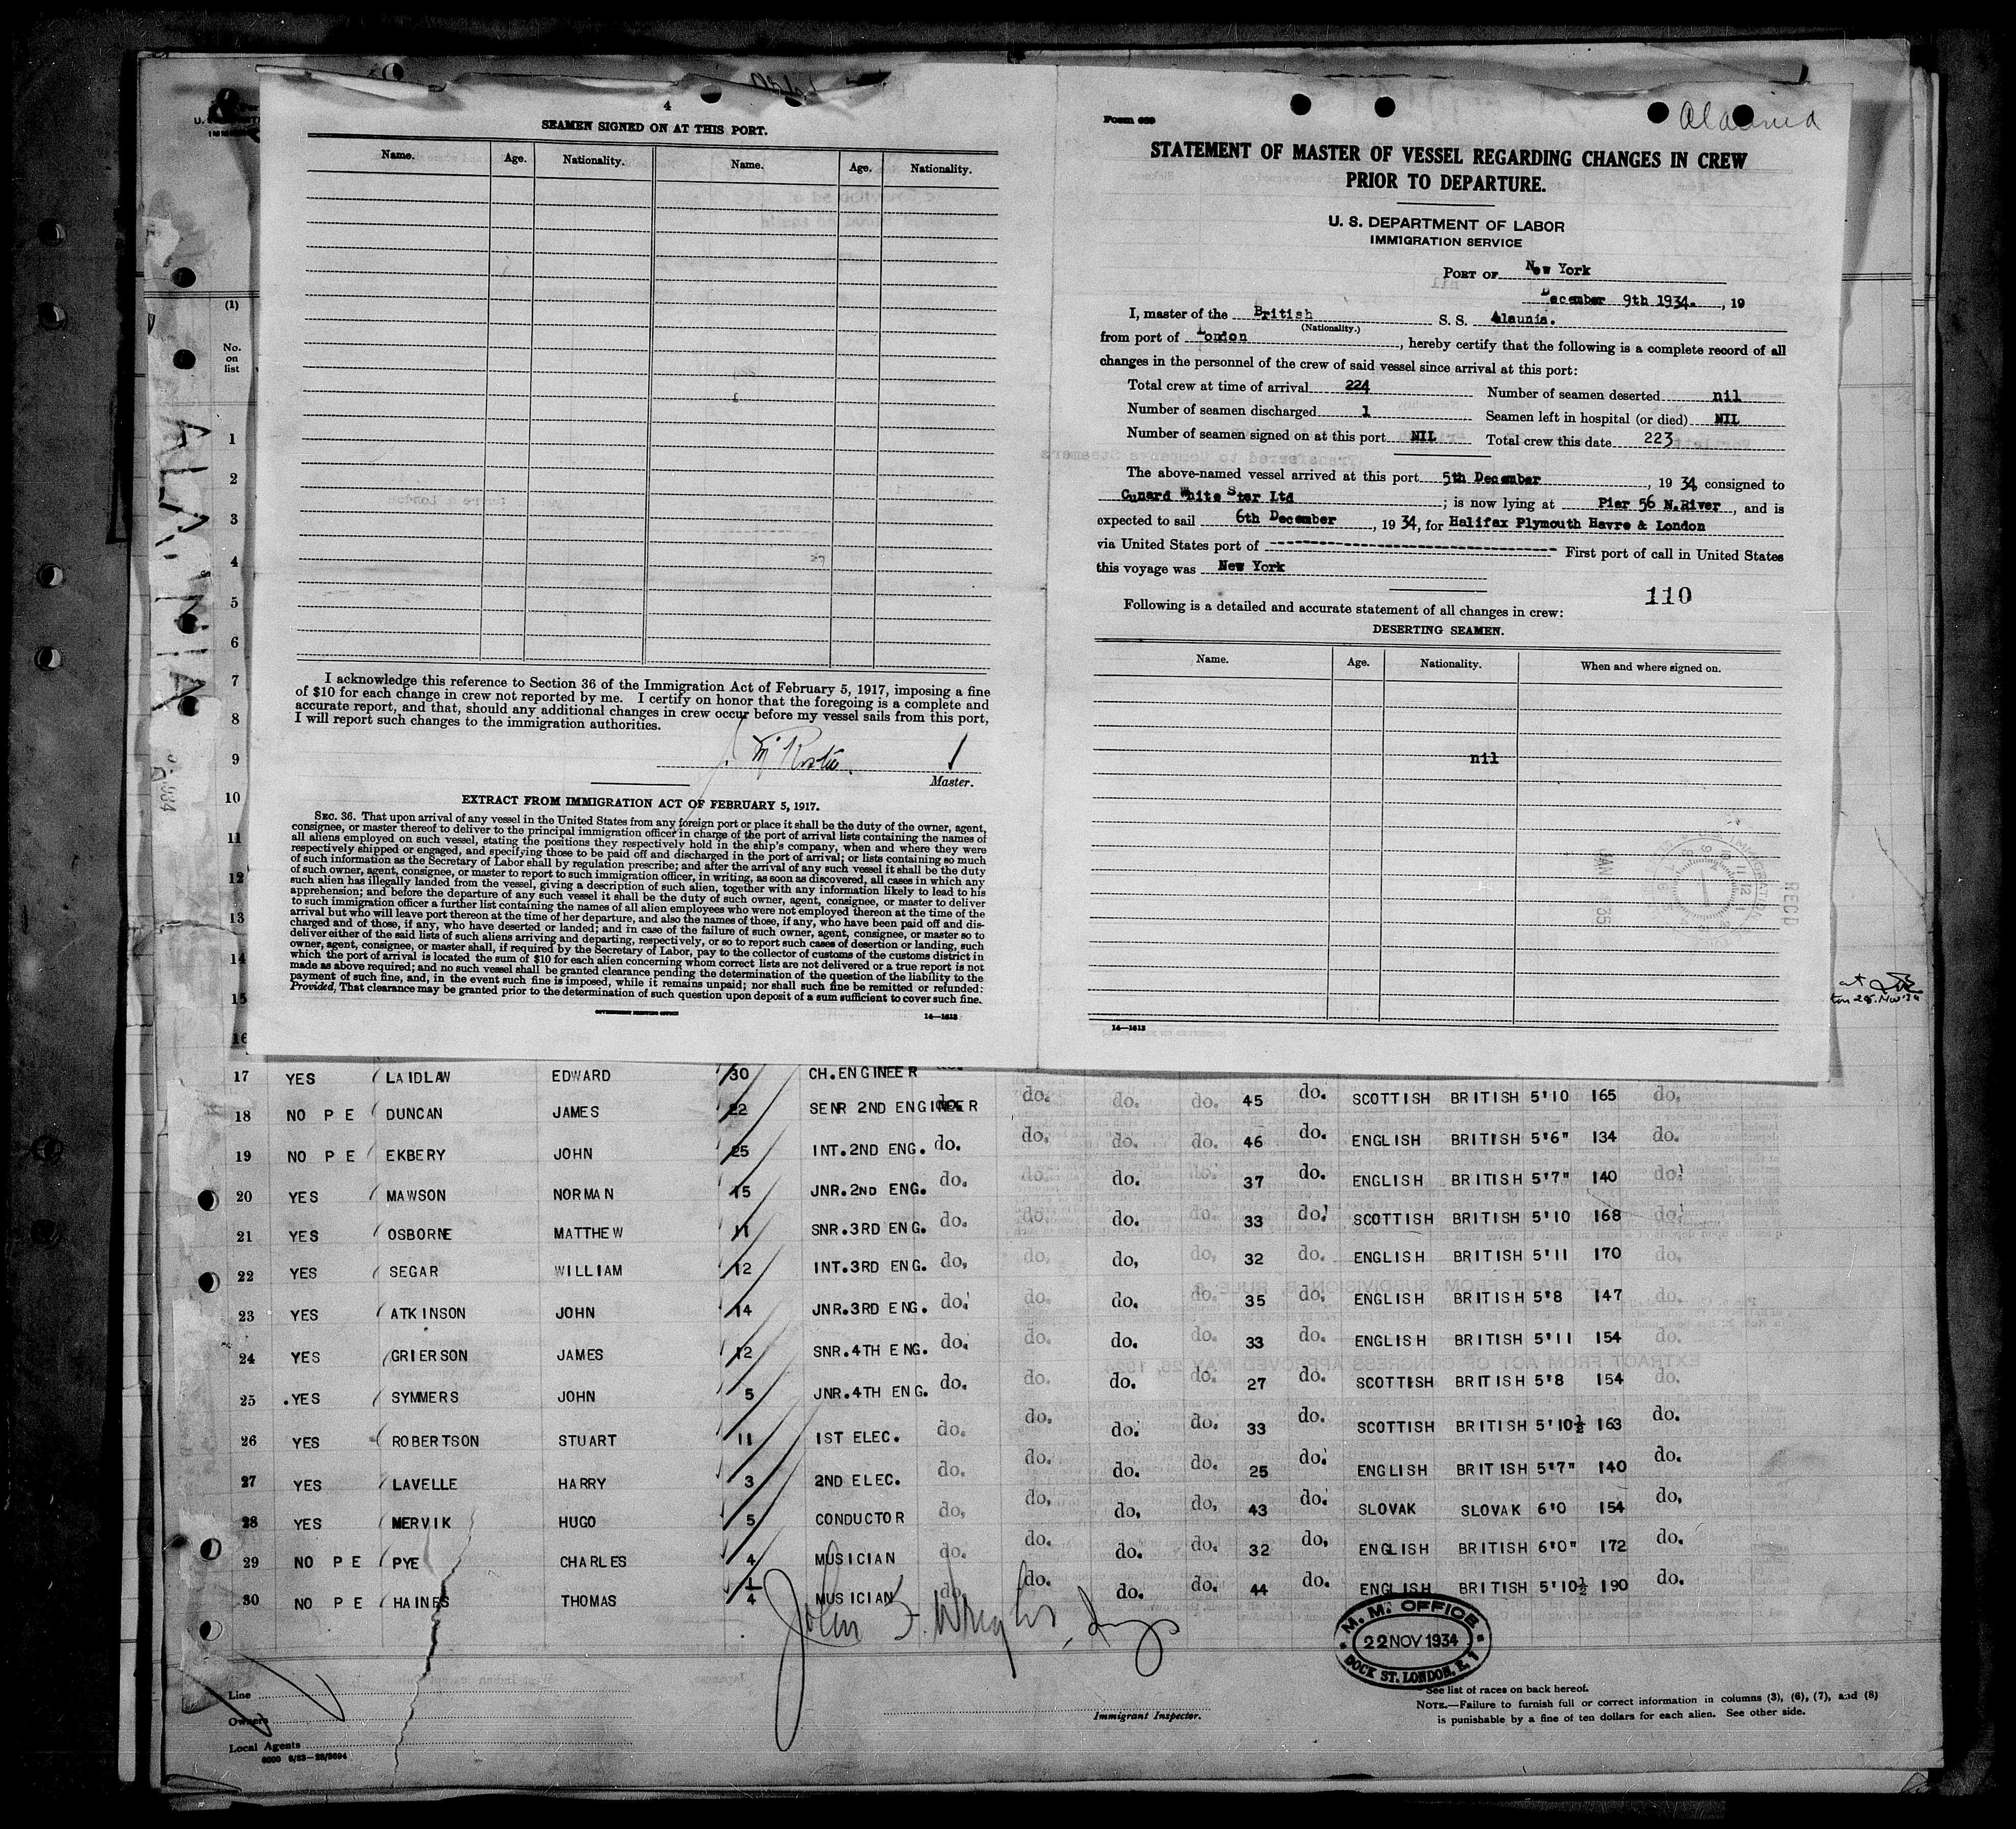 4
SEAMEN SIGNED ON AT THIS PORT.
Name. Age. Nationality. Name. Age. Nationality.
I acknowledge this reference to Section 36 of the Immigration Act of February 5, 1917, imposing a fine
of $10 for each change in crew not reported by me. I certify on honor that the foregoing is a complete and
accurate report, and that, should any additional changes in crew occur before my vessel sails from this port,
I will report such changes to the immigration authorities.
Master.
EXTRACT FROM IMMIGRATION ACT OF FEBRUARY 5, 1917.
SEC. 36. That upon arrival of any vessel in the United States from any foreign port or place it shall be the duty of the owner, agent,
consignee, or master thereof to deliver to the principal immigration officer in charge of the port of arrival lists containing the names of
all aliens employed on such vessel, stating the positions they respectively hold in the ship's company, when and where they were
respectively shipped or engaged, and specifying those to be paid off and discharged in the port of arrival; or lists containing so much
of such information as the Secretary of Labor shall by regulation prescribe; and after the arrival of any such vessel it shall be the duty
of such owner, agent, consignee, or master to report to such immigration officer, in writing, as soon as discovered, all cases in which any
such alien has illegally landed from the vessel, giving a description of such alien, together with any information likely to lead to his
apprehension; and before the departure of any such vessel it shall be the duty of such owner, agent, consignee, or master to deliver
to such immigration officer a further list containing the names of all alien employees who were not employed thereon at the time of the
arrival but who will leave port thereon at the time of her departure, and also the names of those, if any, who have been paid off and dis-
charged and of those, if any, who have deserted or landed; and in case of the failure of such owner, agent, consignee, or master so to
deliver either of the said lists of such aliens arriving and departing, respectively, or so to report such cases of desertion or landing, such
owner, agent, consignee, or master shall, if required by the Secretary of Labor, pay to the collector of customs of the customs district in
which the port of arrival is located the sum of $10 for each alien concerning whom correct lists are not delivered or a true report is not
made as above required; and no such vessel shall be granted clearance pending the determination of the question of the liability to the
payment of such fine, and, in the event such fine is imposed, while it remains unpaid; nor shall such fine be remitted or refunded:
Provided, That clearance may be granted prior to the determination of such question upon deposit of a sum sufficient to cover such fine.
GOVERNMENT PRINTING OFFICE 14—1613
Form 689
Alaunia
STATEMENT OF MASTER OF VESSEL REGARDING CHANGES IN CREW
PRIOR TO DEPARTURE.
U. S. DEPARTMENT OF LABOR
IMMIGRATION SERVICE
PORT OF New York
December 9th 1934. , 19
I, master of the British S. S. Alaunia.
(Nationality.)
from port of London , hereby certify that the following is a complete record of all
changes in the personnel of the crew of said vessel since arrival at this port:
Total crew at time of arrival 224 Number of seamen deserted nil
Number of seamen discharged 1 Seamen left in hospital (or died) NIL
Number of seamen signed on at this port NIL Total crew this date 223
The above-named vessel arrived at this port 5th December , 19 34 consigned to
Cunard White Star Ltd ; is now lying at Pier 56 N.River , and is
expected to sail 6th December , 19 34, for Halifax Plymouth Havre & London
via United States port of First port of call in United States
this voyage was New York
110
Following is a detailed and accurate statement of all changes in crew:
DESERTING SEAMEN.
Name. Age. Nationality. When and where signed on.
nil
14—1613
ALAUNIA
(1)
No.
on
list
1
2
3
4
5
6
7
8
9
10
11
12
13
14
15
16
17 YES LAIDLAW EDWARD 30 CH.ENGINEER
18 NO P E DUNCAN JAMES 22 SENR 2ND ENGINEER do. do. do. 45 do. SCOTTISH BRITISH 5'10 165 do.
19 NO P E EKBERY JOHN 25 INT.2ND ENG. do. do. do. do. 46 do. ENGLISH BRITISH 5'6" 134 do.
20 YES MAWSON NORMAN 15 JNR.2ND ENG. do. do. do. do. 37 do. ENGLISH BRITISH 5'7" 140 do.
21 YES OSBORNE MATTHEW 11 SNR.3RD ENG. do. do. do. do. 33 do. SCOTTISH BRITISH 5'10 168 do.
22 YES SEGAR WILLIAM 12 INT.3RD ENG. do. do. do. do. 32 do. ENGLISH BRITISH 5'11 170 do.
23 YES ATKINSON JOHN 14 JNR.3RD ENG. do. do. do. do. 35 do. ENGLISH BRITISH 5'8 147 do.
24 YES GRIERSON JAMES 12 SNR.4TH ENG. do. do. do. do. 33 do. ENGLISH BRITISH 5'11 154 do.
25 YES SYMMERS JOHN 5 JNR.4TH ENG. do. do. do. do. 27 do. SCOTTISH BRITISH 5'8 154 do.
26 YES ROBERTSON STUART 11 1ST ELEC. do. do. do. do. 33 do. SCOTTISH BRITISH 5'10½ 163 do.
27 YES LAVELLE HARRY 3 2ND ELEC. do. do. do. do. 25 do. ENGLISH BRITISH 5'7" 140 do.
28 YES MERVIK HUGO 5 CONDUCTOR do. do. do. do. 43 do. SLOVAK SLOVAK 6'0 154 do.
29 NO P E PYE CHARLES 4 MUSICIAN do. do. do. do. 32 do. ENGLISH BRITISH 6'0" 172 do.
30 NO P E HAINES THOMAS 1/4 MUSICIAN do. do. do. do. 44 do. ENGLISH BRITISH 5'10½ 190 do.
John F. Wright
M. M. OFFICE
22 NOV 1934
DOCK ST. LONDON. E. 1
Line
Owners
Local Agents
Immigrant Inspector.
See list of races on back hereof.
NOTE.—Failure to furnish full or correct information in columns (3), (6), (7), and (8)
is punishable by a fine of ten dollars for each alien. See other side.